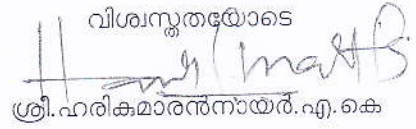 വിശ്വസ്തതയോടെ
ശ്രീ.ഹരികുമാരൻനായർ.എ.കെ